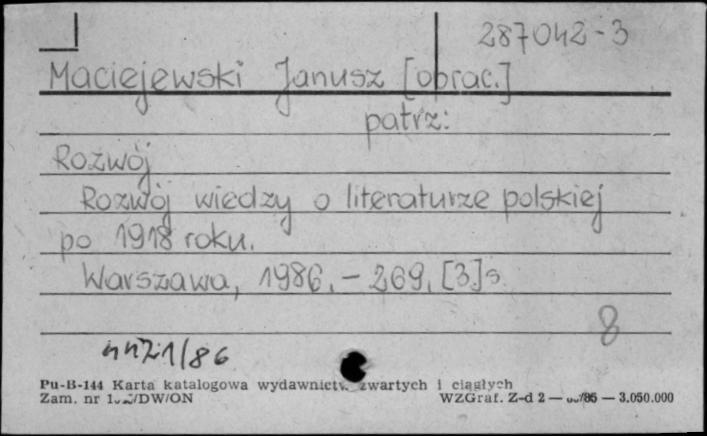 287042-3
Maciejewski Janusz [oprac.]
patrz:
Rozwój
Rozwój wiedzy o literaturze polskiej
po 1918 roku.
Warszawa, 1986. - 269, [3] s.
8
Pu-B-144 Karta katalogowa wydawnictw zwartych i ciągłych
Zam. nr /DW/ON WZGraf. Z-d 2 — /86 — 3.050.000